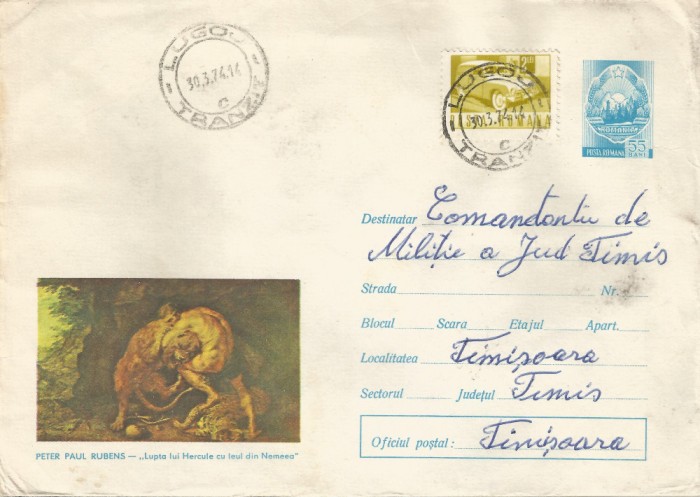 LUGOJ
30.3.74.14
C
TRANZIT
LUGOJ
30.3.74.14
C
TRANZIT
ROMANIA
POSTA ROMANA
55
BANI
Destinatar Comandantu de
Miliție a Jud Timis
Strada Nr.
Blocul Scara Etajul Apart.
Localitatea Timișoara
Sectorul Județul Timis
Oficiul poștal: Timișoara
PETER PAUL RUBENS — „Lupta lui Hercule cu leul din Nemeea"